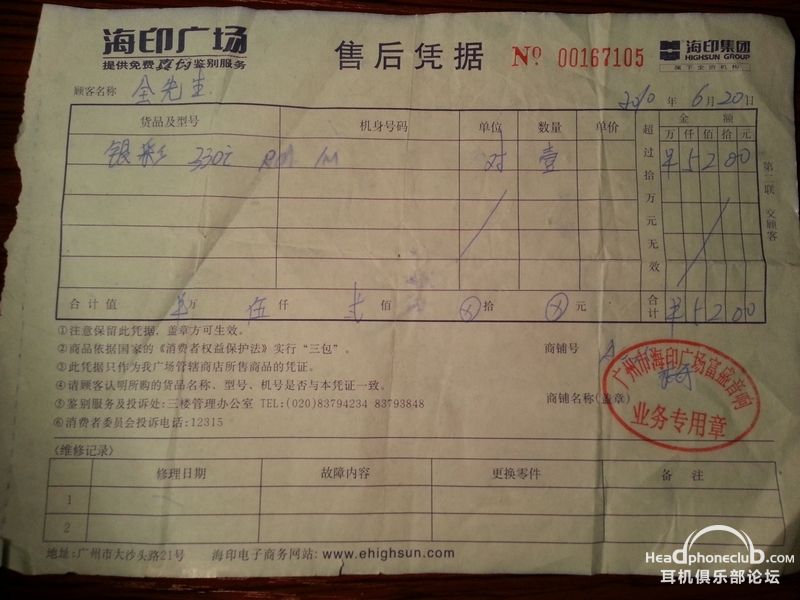 海印广场
提供免费真伪鉴别服务
售后凭据 № 00167105
海印集团
HIGHSUN GROUP
属下全资机构
顾客名称 全先生 2010年6月20日
货品及型号 机身号码 单位 数量 单价 超过拾万元无效 金额
万 仟 佰 拾 元
银彩 330i 对 壹 ¥5200
第二联 交顾客
合计值 万 伍仟 贰佰 ⊗拾 ⊗元 合计 ¥5200
①注意保留此凭据,盖章方可生效。
②商品依据国家的《消费者权益保护法》实行“三包”。 商铺号
③此凭据只作为我广场管辖商店所售商品的凭证。
④请顾客认明所购的货品名称、型号、机号是否与本凭证一致。
⑤鉴别服务及投诉处:三楼管理办公室 TEL:(020)83794234 83793848 商铺名称(盖章)
⑥消费者委员会投诉电话:12315
广州市海印广场富盛音响
业务专用章
〈维修记录〉
修理日期 故障内容 更换零件 备注
1
2
地址:广州市大沙头路21号 海印电子商务网站: www.ehighsun.com
Headphoneclub.com
耳机俱乐部论坛